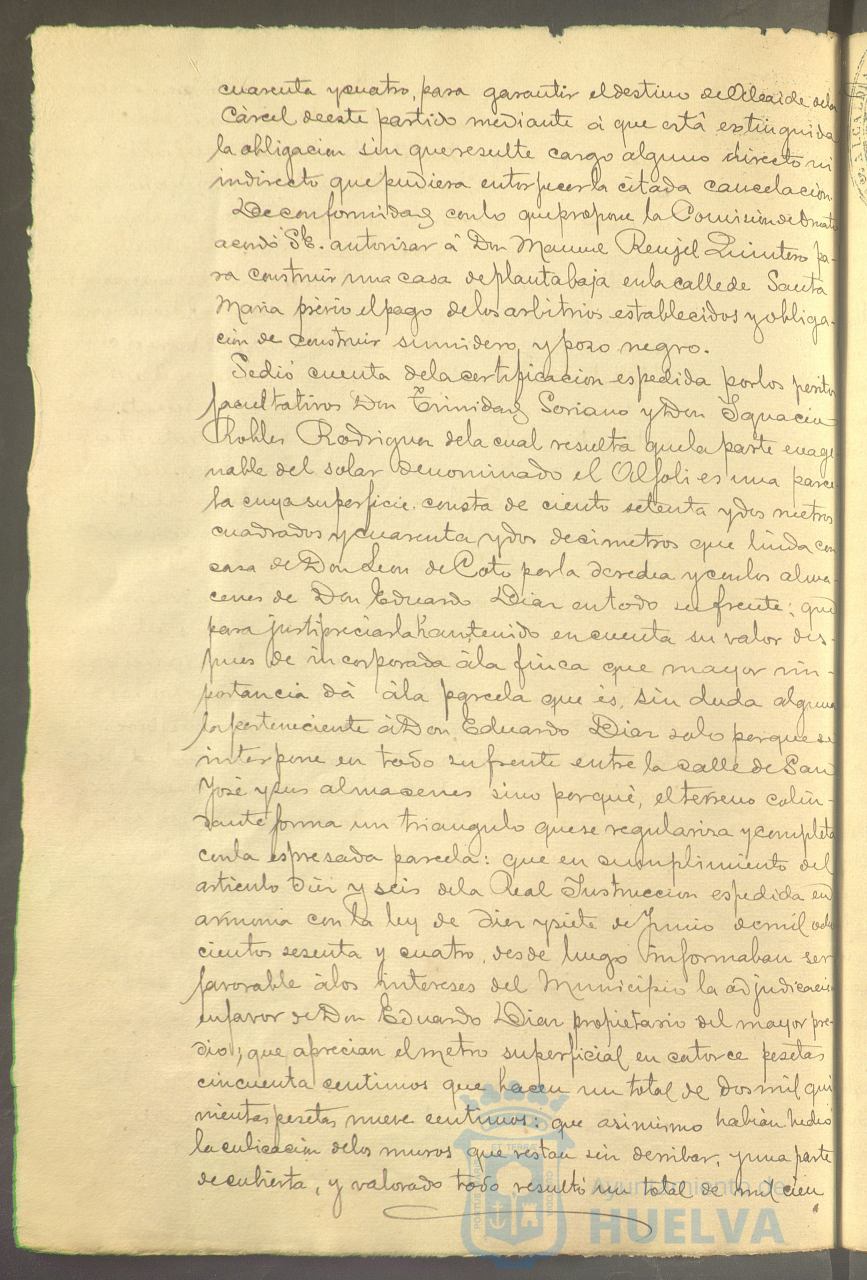 cuarenta y cuatro, para garantir el destino de Alcaide de la
Cárcel de este partido mediante á que está extinguida
la obligacion sin que resulte cargo alguno directo ni
indirecto que pudiera entorpecer la citada cancelacion.
De conformidad con lo que propone la Comision de Ornato
acordó S.E. autorizar á Don Manuel Renjel Quintero pa-
ra construir una casa de planta baja en la calle de Santa
Maria prévio el pago de los arbitrios establecidos y obliga-
cion de construir sumidero y pozo negro.
Se dió cuenta de la certificacion espedida por los peritos
facultativos Don Trinidad Soriano y Don Ignacio
Robles Rodriguez de la cual resulta que la parte enage
nable del solar denominado el Alfoli es una parce
la cuya superficie consta de ciento setenta y dos metros
cuadrados y cuarenta y dos decimetros que linda con
casa de Don Leon de Coto por la derecha y con los alma-
cenes de Don Eduardo Diaz en todo su frente; que
para justipreciarla han tenido en cuenta su valor des-
pues de incorporada á la finca que mayor im-
portancia dá á la parcela que és, sin duda alguna
la perteneciente á Don Eduardo Diaz solo porque se
interpone en todo su frente entre la calle de San
José y sus almacenes sino porqué, el terreno colin-
dante forma un triangulo que se regulariza y completa
con la espresada parcela: que en cumplimiento del
articulo diez y seis de la Real Instruccion espedida en
armonia con la ley de diez y siete de Junio de mil ocho
cientos sesenta y cuatro, desde luego informaban ser
favorable á los intereses del Municipio la adjudicacion
en favor de Don Eduardo Diaz propietario del mayor pre-
dio; que aprecian el metro superficial en catorce pesetas
cincuenta centimos que hacen un total de dos mil qui
nientas pesetas nueve centimos: que asimismo habian hecho
la cubicacion de los muros que restan sin derribar, y una parte
de cubierta, y valorado todo resultó un total de mil cien
Ayuntamiento de
HUELVA